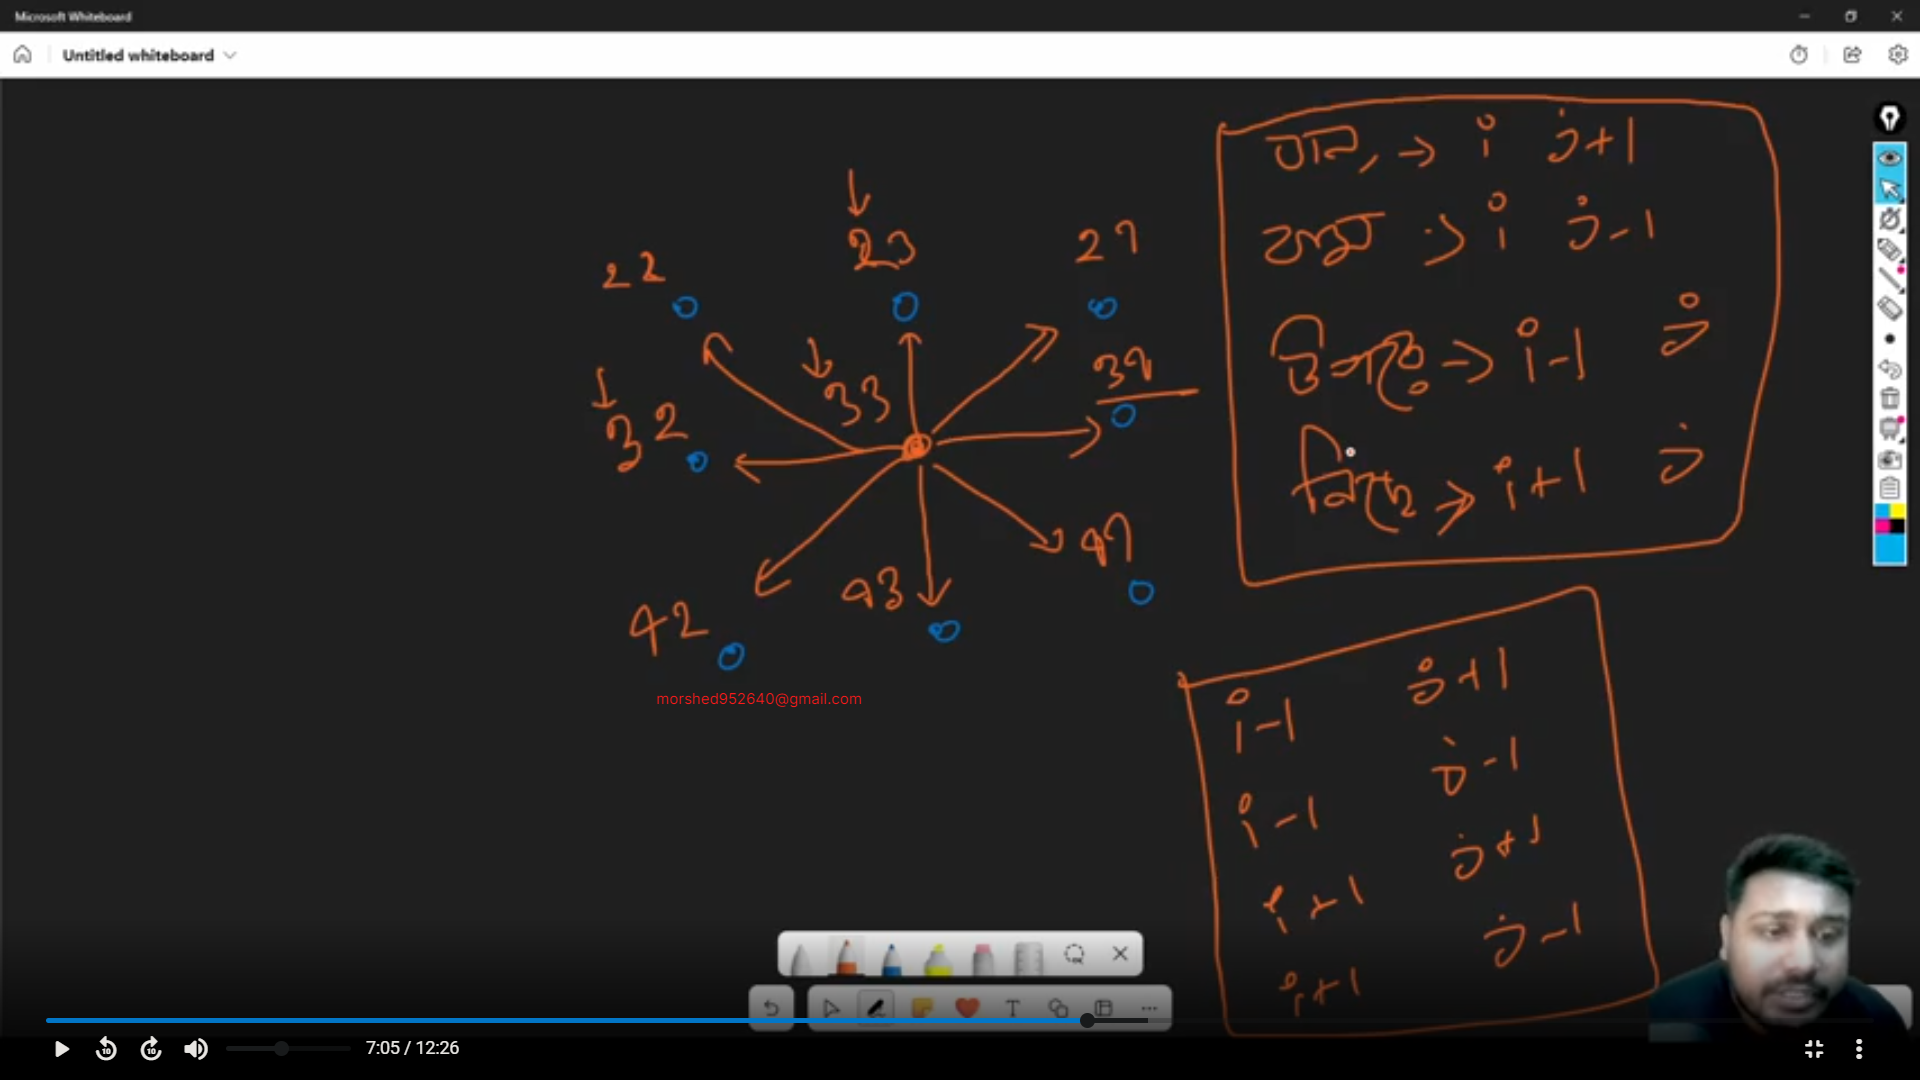 Microsoft Whiteboard
Untitled whiteboard
22
23
33
32
42
43
ডানে → i j+1
বামে → i j-1
উপরে → i-1 j
নিচে → i+1 j
i-1 j+1
i-1 j-1
i+1 j+1
i+1 j-1
morshed952640@gmail.com
10
10
7:05 / 12:26